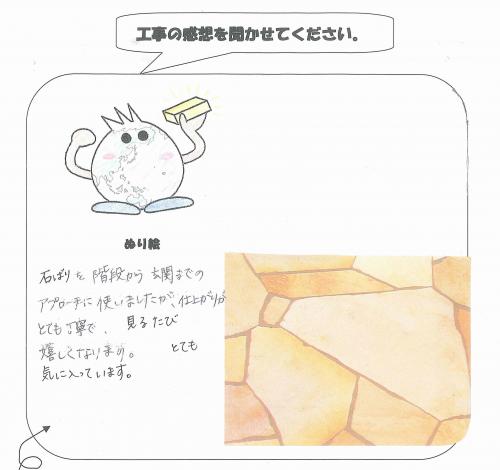 工事の感想を聞かせてください。
ぬり絵
石ばりを階段から玄関までの
アプローチに使いましたが、仕上がりが
とても丁寧で、見るたび
嬉しくなります。とても
気に入っています。